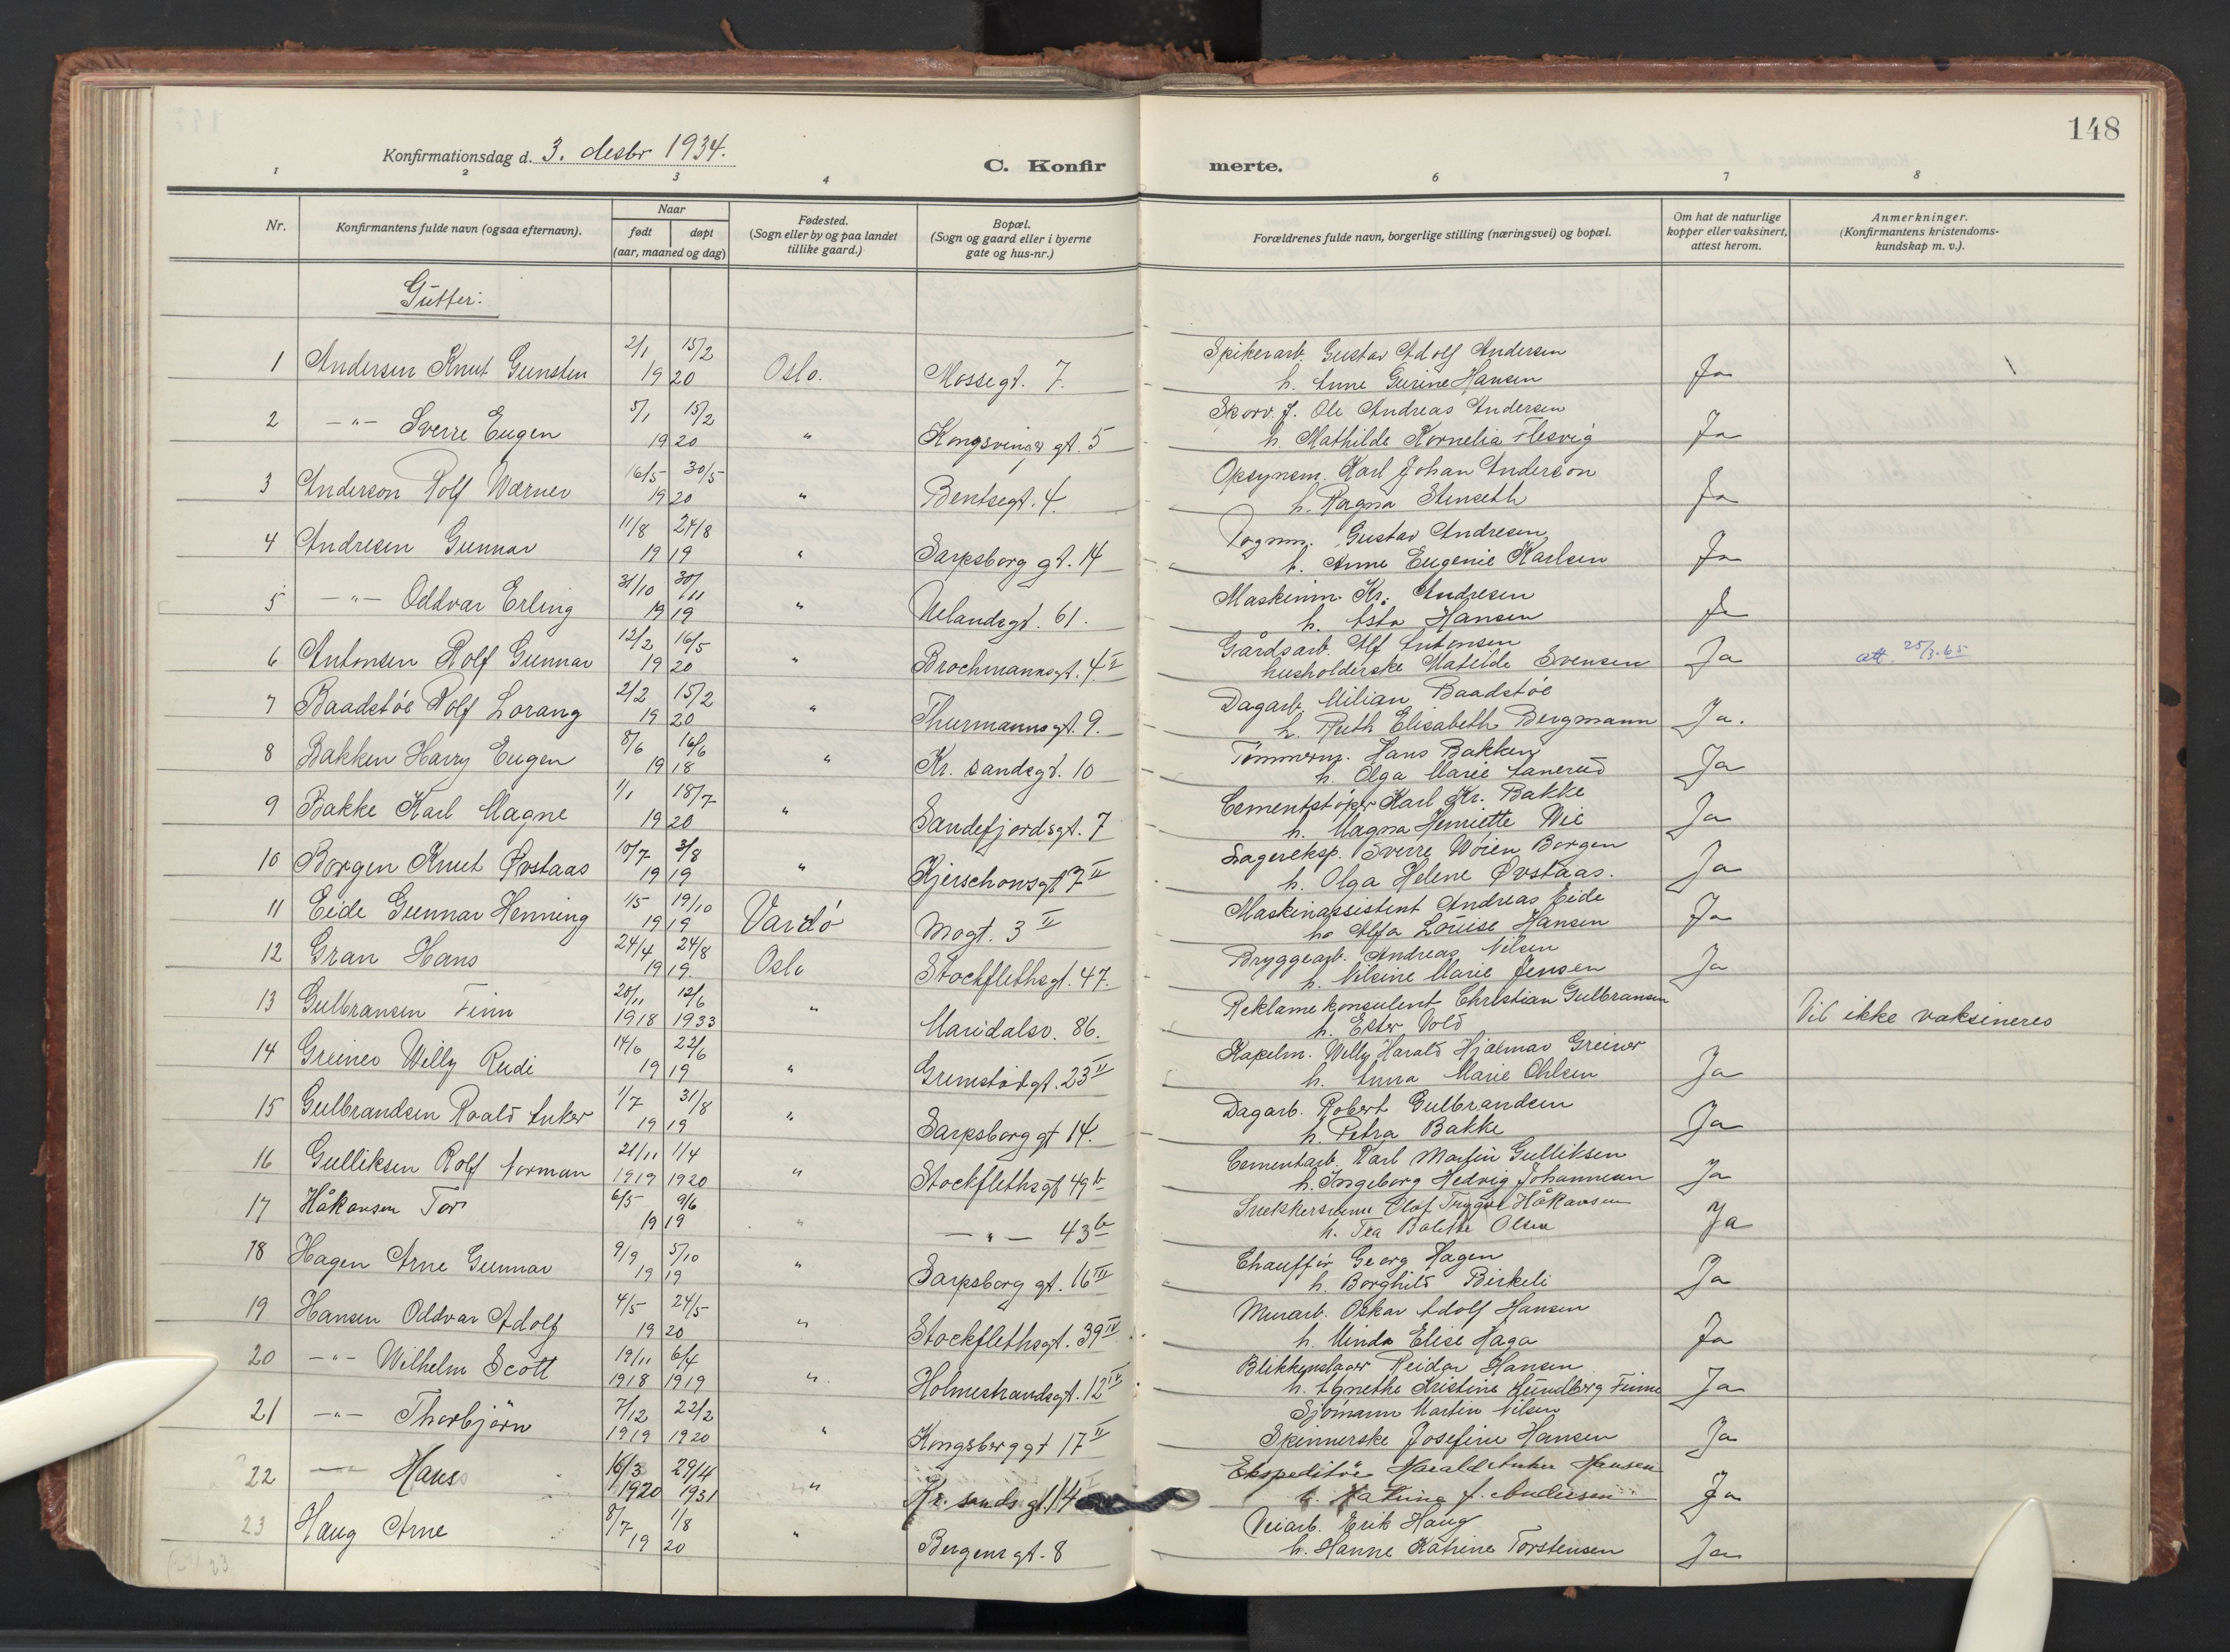 148
Konfirmationsdag d. 3. desbr 1934.
C. Konfirmerte.
1 2 3 4 6 7 8
Nr.
Konfirmantens fulde navn (ogsaa efternavn).
Naar
født døpt
(aar, maaned og dag)
Fødested.
(Sogn eller by og paa landet
tillike gaard.)
Bopæl.
(Sogn og gaard eller i byerne
gate og hus-nr.)
Forældrenes fulde navn, borgerlige stilling (næringsvei) og bopæl.
Om hat de naturlige
kopper eller vaksinert,
attest herom.
Anmerkninger.
(Konfirmantens kristendoms-
kundskap m. v.).
Gutter:
2/1 15/2 Spikerarb. Gustav Adolf Andersen
1 Andersen Knut Gunsten 19 20 Oslo. Mossegt. 7. h. Anne Gurine Hansen Ja
5/1 15/2 Skorv. f. Ole Andreas Andersen
2 -"- Sverre Eugen 19 20 " Kongsvinger gt. 5 h. Mathilde Kornelia Flesvig Ja
16/5 30/5 Opsynsm. Karl Johan Anderson
3 Anderson Rolf Werner 19 20 " Bentsegt. 4. h. Ragna Stenseth Ja
11/8 24/8 Vognm. Gustav Andresen
4 Andresen Gunnar 19 19 " Sarpsborg gt. 14 h. Anne Eugenie Karlsen Ja
31/10 30/11 Maskinm. Kr. Andresen
5 -"- Oddvar Erling 19 19 " Uelandsgt. 61. h. Asta Hansen Ja
12/2 16/5 Gårdsarb. Alf Antonsen
6 Antonsen Rolf Gunnar 19 20 " Brochmannsgt. 4 husholderske Matilde Svensen Ja att. 25/3-65
2/2 15/2 Dagarb. Milian Baadstøe
7 Baadstøe Rolf Lorang 19 20 " Thurmannsgt. 9. h. Ruth Elisabeth Bergmann Ja.
8/6 16/6 Tømmerm. Hans Bakken
8 Bakken Harry Eugen 19 18 " Kr. sandsgt. 10 h. Olga Marie Lanerud Ja
1/1 18/7 Cementstøper Karl Kr. Bakke
9 Bakke Karl Magne 19 20 Sandefjordsgt. 7 h. Magna Henriette Wie Ja
10/7 3/8 Lagereksp. Sverre Wøien Borgen
10 Borgen Knut Øvstaas 19 19 " Kjerschowsgt 7 II h. Olga Helene Øvstaas. Ja
1/5 19/10 Maskinassistent Andreas Eide
11 Eide Gunnar Henning 19 19 Vardö Mogt. 3 II h. Alfa Louise Hansen Ja
24/4 24/8 Bryggearb. Andreas Nilsen
12 Gran Hans 19 19. Oslo Stockflethsgt. 47. h. Nilsine Marie Jensen Ja
20/11 12/6 Reklamekonsulent Christian Gulbransen
13 Gulbransen Finn 1918 1933 " Maridalsv. 86. h. Ester Vold Vil ikke vaksineres
14/6 22/6 Kapelm. Willy Harald Hjalmar Greiner
14 Greiner Willy Rudi 19 19 " Grimstadgt. 23 II h. Anna Marie Ohlsen Ja
1/7 31/8 Dagarb. Robert Gulbrandsen
15 Gulbrandsen Roald Anker 19 19 " Sarpsborg gt 14. h. Petra Bakke Ja
21/11 1/4 Cementarb. Karl Martin Gulliksen
16 Gulliksen Rolf Norman 1919 1920 " Stockflethsgt 49 b h. Ingeborg Hedvig Johannesen Ja
6/5 9/6 Snekkersvenn Olaf Trygve Håkonsen
17 Håkonsen Tor 19 19 " -"- 43 b h. Tea Bolette Olsen Ja
9/9 5/10 Chauffør Georg Hagen
18 Hagen Arne Gunnar 19 19 " Sarpsborg gt. 16 III h. Borghild Birkeli Ja
4/5 24/5 Murarb. Oskar Adolf Hansen
19 Hansen Oddvar Adolf 19 20 " Stockflethsgt. 39 IV h. Minda Elise Haga Ja
19/11 6/4 Blikkenslager Reidar Hansen
20 -"- Wilhelm Scott 1918 1919 " Holmestrandsgt. 12 IV h. Agnethe Kristine Lundborg Finne Ja
7/12 22/2 Sjømann Martin Nilsen
21 -"- Thorbjørn 1919 1920 " Kongsberg gt 17 II Spinnerske Josefine Hansen Ja
16/3 29/4 Ekspeditør Harald Anker Hansen
22 -"- Hans 1920 1931 " Kr. sands gt. 14 h. Katrine f. Andersen Ja
8/7 1/8 Veiarb. Erik Haug
23 Haug Arne 19 20 " Bergens gt. 8 h. Hanne Katrine Torstensen Ja
23